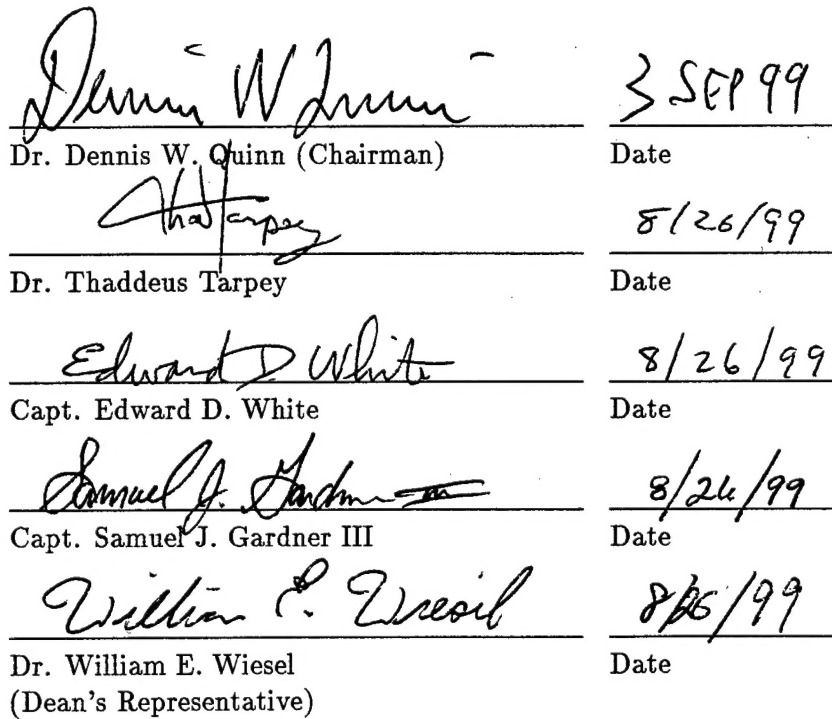 Dennis W Quinn 3 SEP 99
Dr. Dennis W. Quinn (Chairman) Date
Thad Tarpey 8/26/99
Dr. Thaddeus Tarpey Date
Edward D. White 8/26/99
Capt. Edward D. White Date
Samuel J. Gardner III 8/26/99
Capt. Samuel J. Gardner III Date
William E. Wiesel 8/26/99
Dr. William E. Wiesel Date
(Dean's Representative)